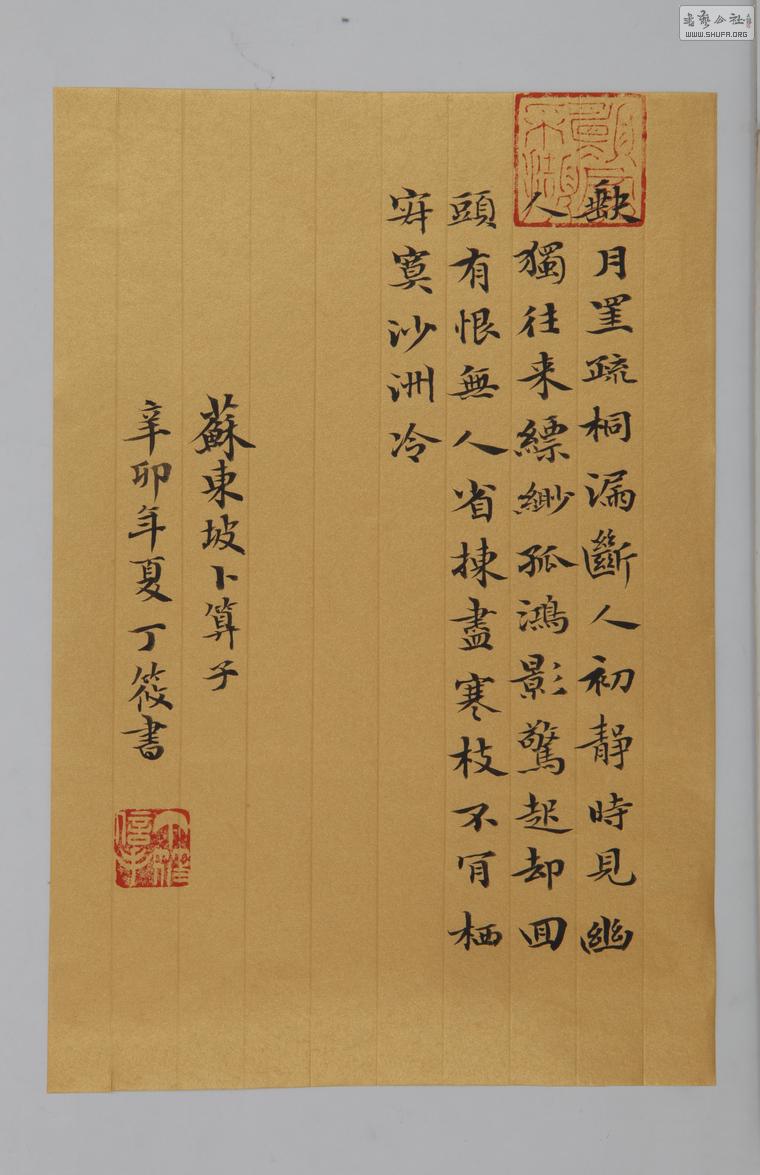 缺月罣疏桐漏斷人初靜時見幽
人獨往来縹緲孤鴻影驚起却回
頭有恨無人省揀盡寒枝不肎栖
寂寞沙洲冷
蘇東坡卜算子
辛卯年夏丁筱書
書藝公社
WWW.SHUFA.ORG